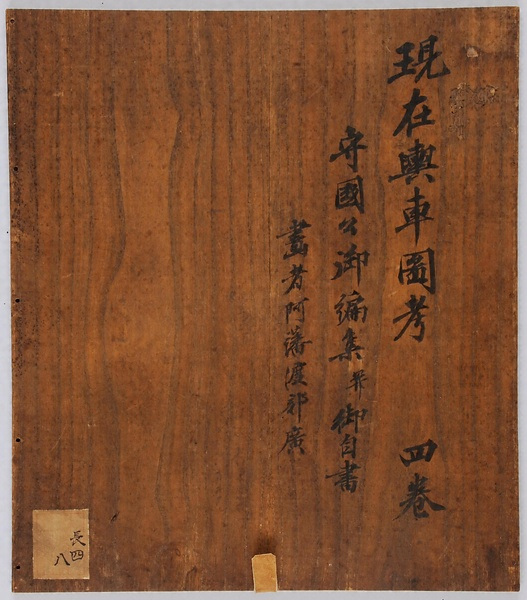 現在輿車圖考 四巻
守國公御編集並御自書
畫者阿藩渡邉廣
長四
八